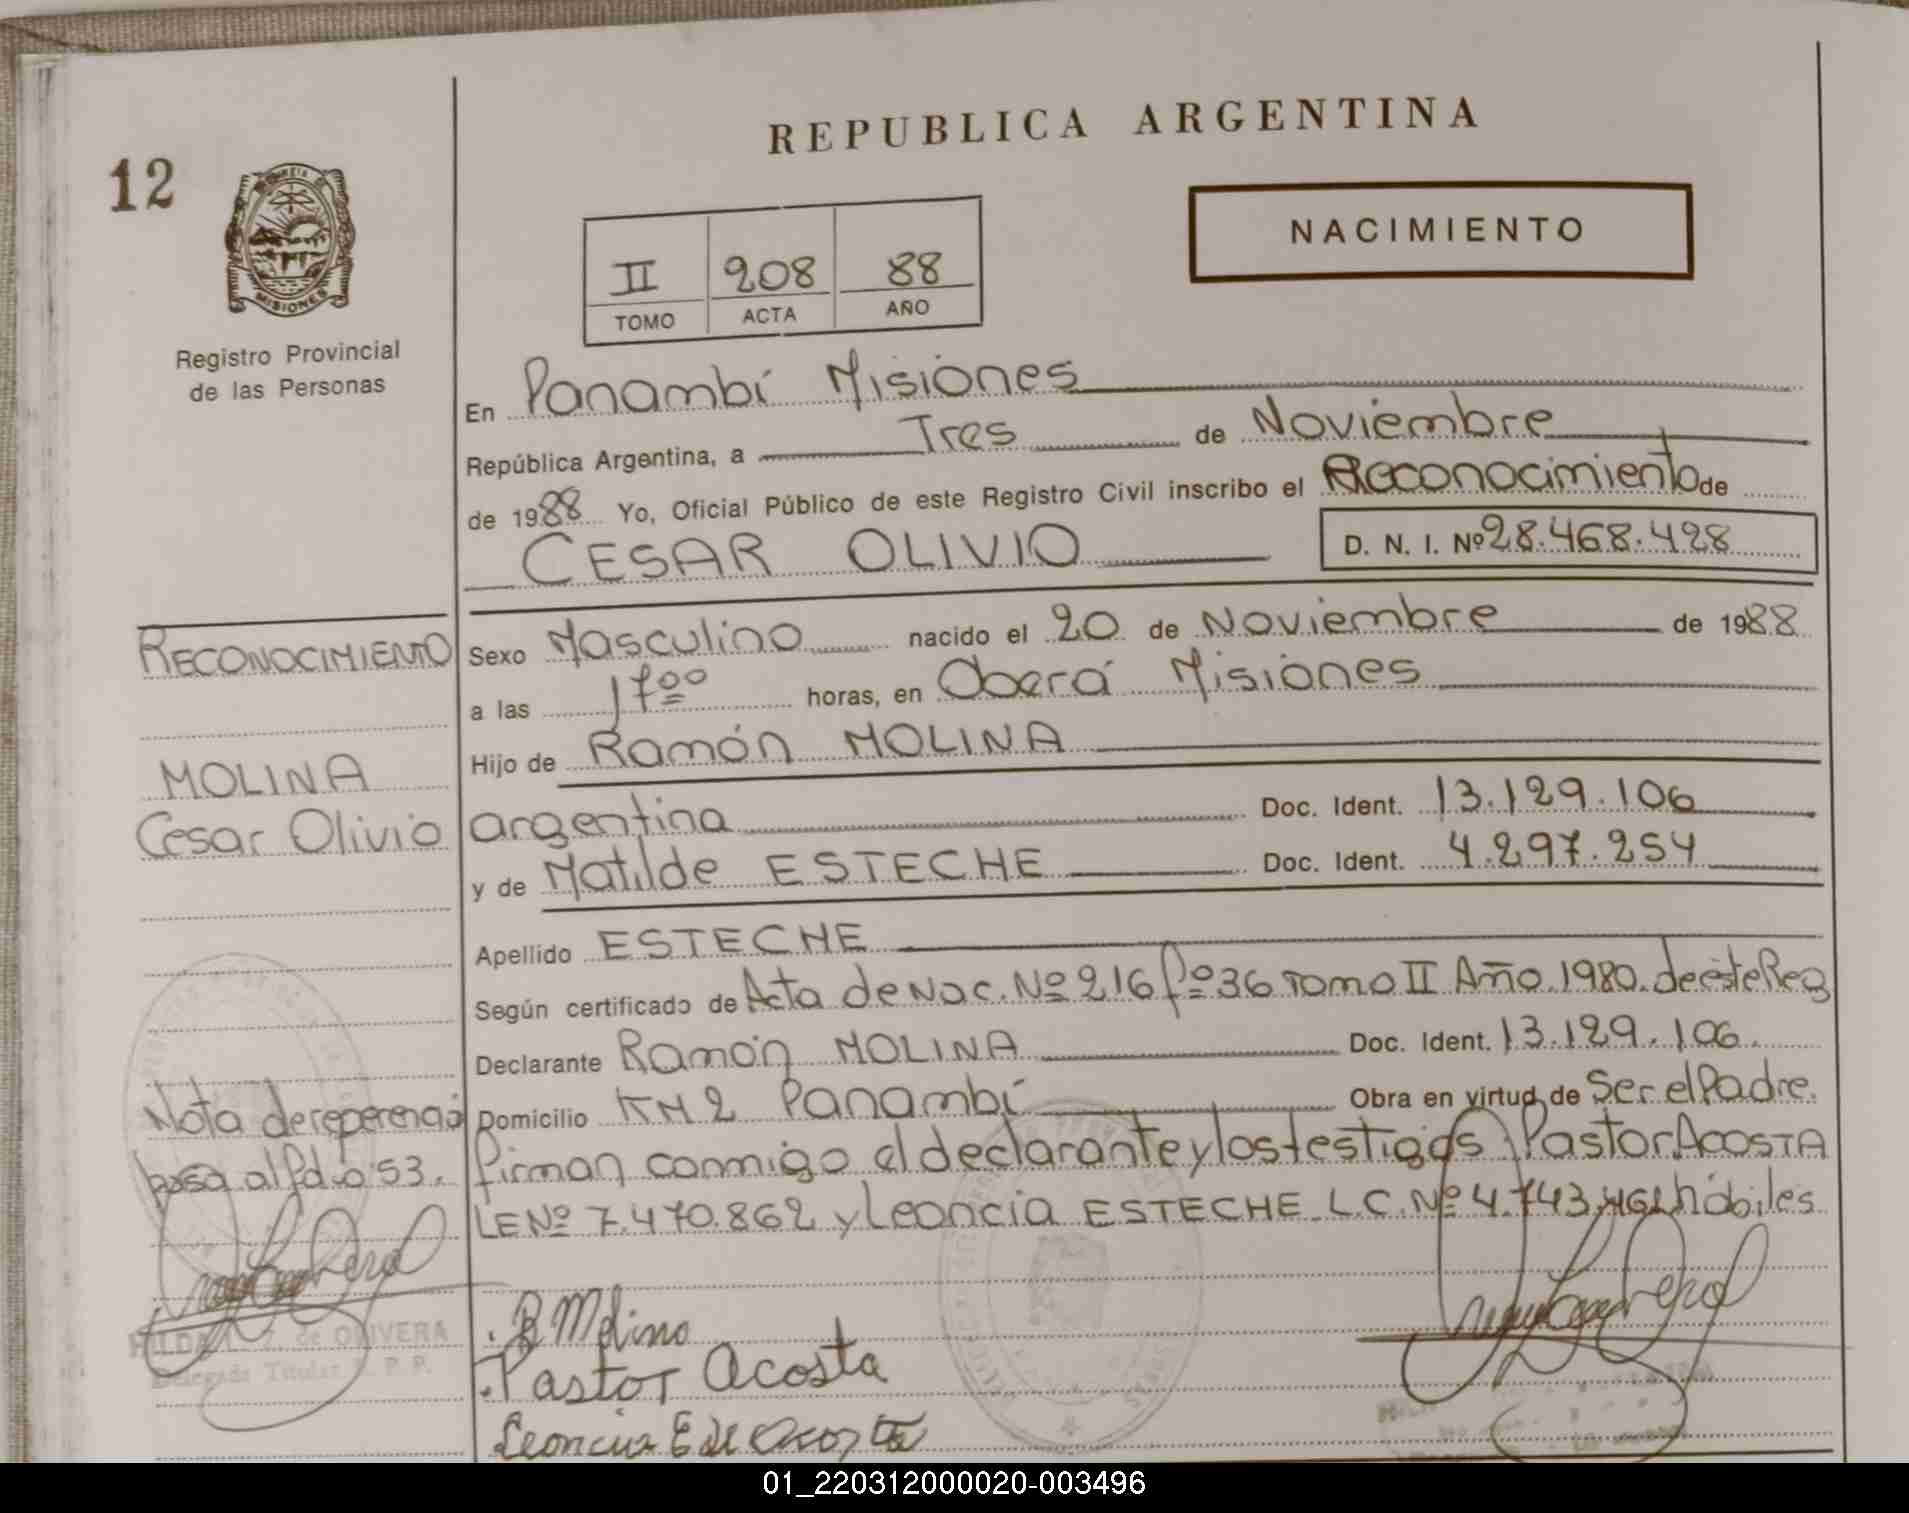 REPUBLICA ARGENTINA
12
NACIMIENTO
MISIONES
Registro Provincial
de las Personas
II 208 88
TOMO ACTA AÑO
En Panambí Misiones
República Argentina, a Tres de Noviembre
de 1988 Yo, Oficial Público de este Registro Civil inscribo el Reconocimiento de
CESAR OLIVIO D. N. I. Nº 28.468.428
RECONOCIMIENTO
MOLINA
Cesar Olivio
Sexo Masculino nacido el 20 de Noviembre de 1988
a las 17oo horas, en Oberá Misiones
Hijo de Ramón MOLINA
argentina Doc. Ident. 13.129.106
y de Matilde ESTECHE Doc. Ident. 4.297.254
Apellido ESTECHE
Según certificado de Acta de Nac. Nº 216 fº 36 Tomo II Año 1980. de este Reg
Declarante Ramón MOLINA Doc. Ident. 13.129.106.
Domicilio KM 2 Panambí Obra en virtud de Ser el Padre.
firman conmigo el declarante y los testigos: Pastor ACOSTA
LE Nº 7.470.862 y Leoncia ESTECHE L.C. Nº 4.743. hábiles
Nota de referencia
pasa al folio 53.
HILDA de OLIVERA
Delegada Titular R. P. P.
R Molina
Pastor Acosta
Leoncia E de Acosta
01_220312000020-003496